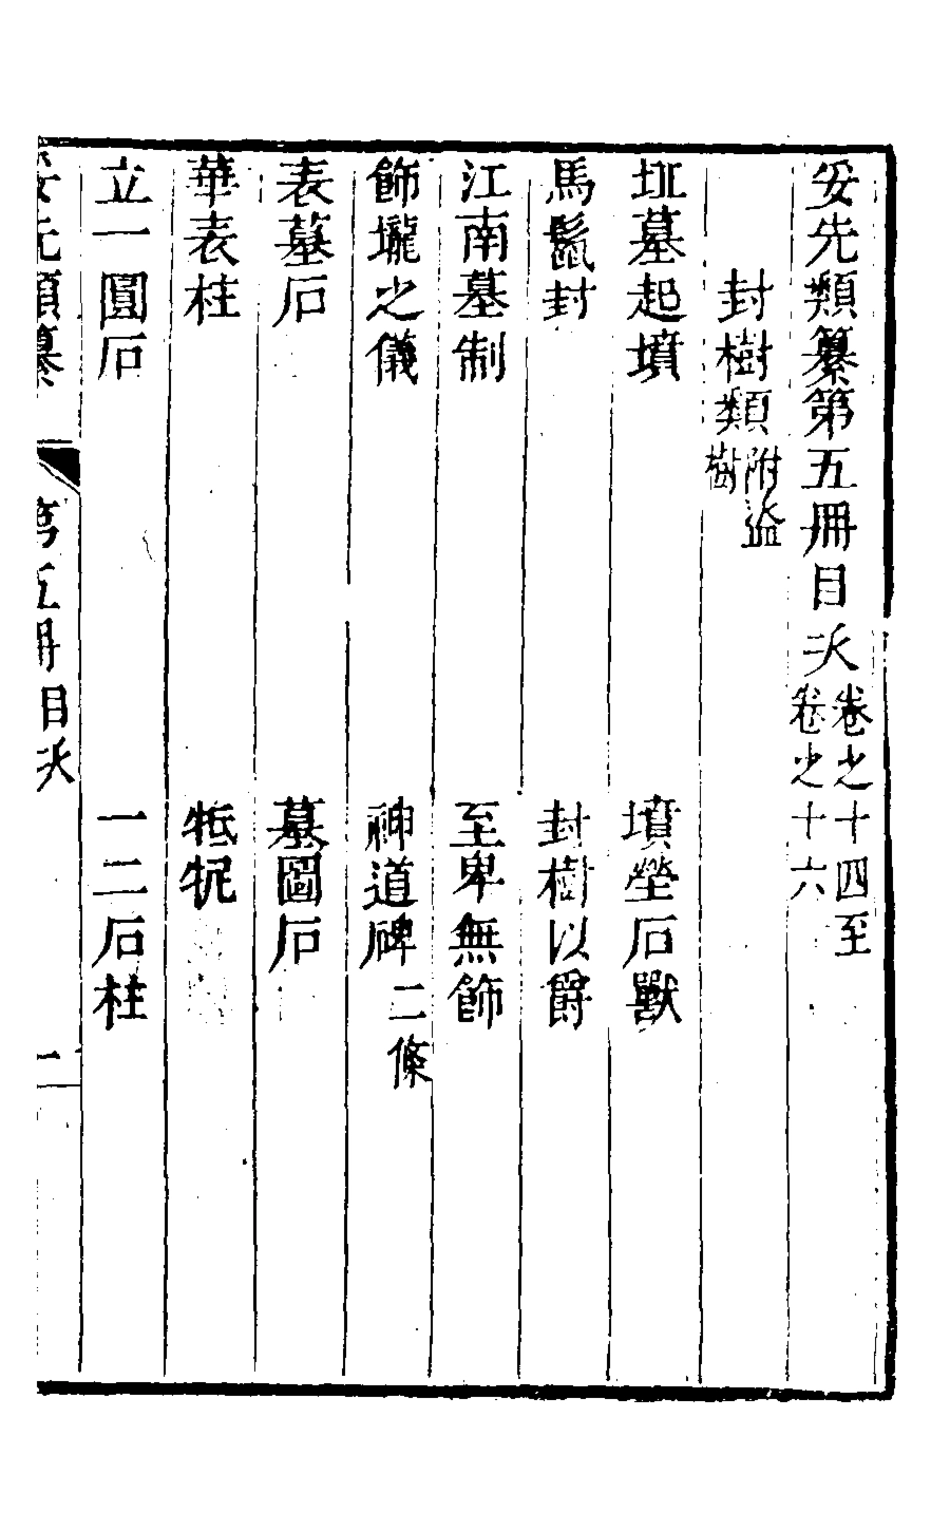 妥先類纂第五冊目次卷之十四至卷之十六
封樹類附盜樹
坵墓起墳　墳塋石獸
馬鬣封　封樹以爵
江南墓制　至卑無飾
飾壠之儀　神道碑二條
表墓石　墓圖石
華表柱　牴狔
立一圓石　一二石柱
妥先類纂　第五冊目次　一